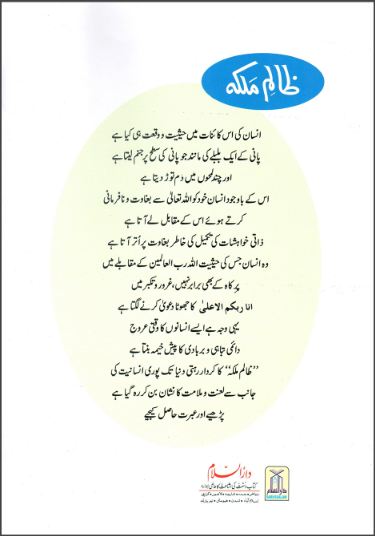 ظالم ملکہ
انسان کی اس کائنات میں حیثیت و وقعت ہی کیا ہے
پانی کے ایک بلبلے کی مانند جو پانی کی سطح پر جنم لیتا ہے
اور چند لمحوں میں دم توڑ دیتا ہے
اس کے باوجود انسان خود کو اللہ تعالیٰ سے بغاوت و نافرمانی
کرتے ہوئے اس کے مقابل لے آتا ہے
ذاتی خواہشات کی تکمیل کی خاطر بغاوت پر اُتر آتا ہے
وہ انسان جس کی حیثیت اللہ رب العالمین کے مقابلے میں
پرِ کاہ کے بھی برابر نہیں، غرور و تکبر میں
انا ربکم الاعلیٰ کا جھوٹا دعویٰ کرنے لگتا ہے
یہی وجہ ہے ایسے انسانوں کا وقتی عروج
دائمی تباہی و بربادی کا پیش خیمہ بنتا ہے
”ظالم ملکہ“ کا کردار رہتی دنیا تک پوری انسانیت کی
جانب سے لعنت و ملامت کا نشان بن کر رہ گیا ہے
پڑھیے اور عبرت حاصل کیجیے
دارالسلام
کتاب و سنت کی اشاعت کا عالمی ادارہ
دارالسلام
DARUSSALAM